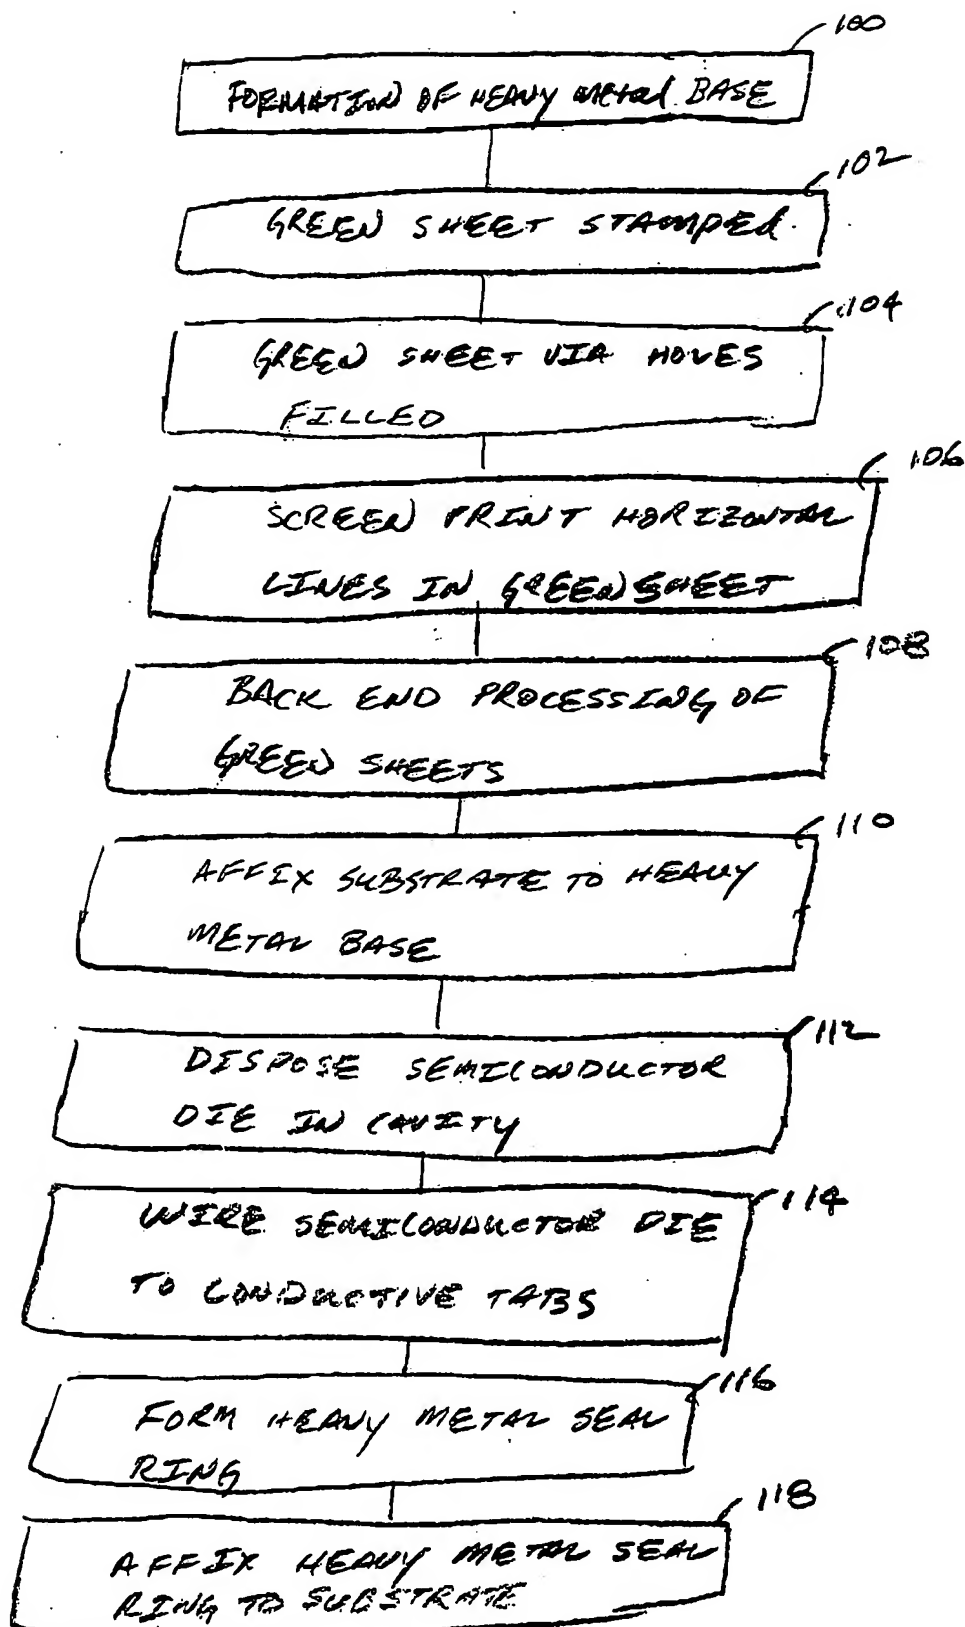 100
FORMATION OF HEAVY METAL BASE
102
GREEN SHEET STAMPED.
104
GREEN SHEET VIA HOLES
FILLED
106
SCREEN PRINT HORIZONTAL
LINES IN GREEN SHEET
108
BACK END PROCESSING OF
GREEN SHEETS
110
AFFIX SUBSTRATE TO HEAVY
METAL BASE
112
DISPOSE SEMICONDUCTOR
DIE IN CAVITY
114
WIRE SEMICONDUCTOR DIE
TO CONDUCTIVE TABS
116
FORM HEAVY METAL SEAL
RING
118
AFFIX HEAVY METAL SEAL
RING TO SUBSTRATE